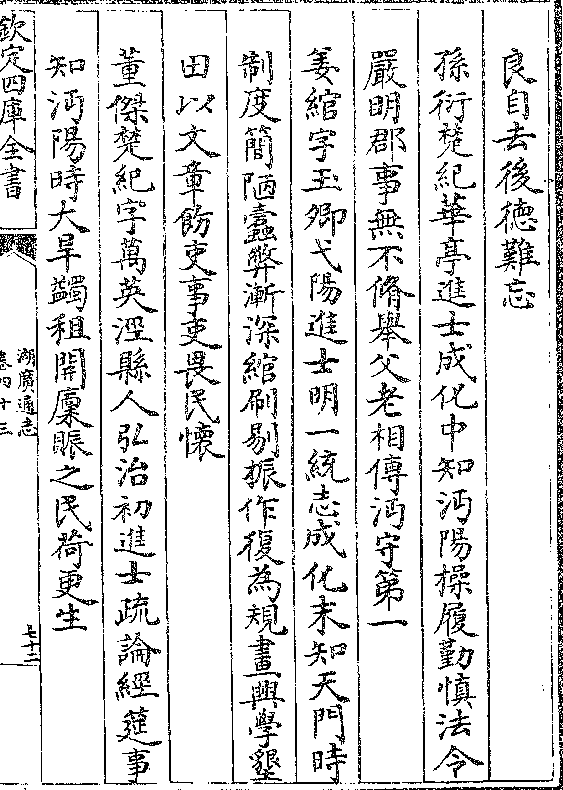 良自去後德難忘
孫衍楚紀華亭進士成化中知沔陽操履勤慎法令
嚴明郡事無不脩舉父老相傳沔守第一
姜綰字玉卿弋陽進士明一統志成化末知天門時
制度簡陋蠧弊漸深綰刷剔振作復為規畫興學墾
田以文章飭吏事吏畏民懷
董傑楚紀字萬英涇縣人弘治初進士疏論經筵事
知沔陽時大旱蠲租開廩賑之民荷更生
欽定四庫全書
湖廣通志
卷四十三
七十二